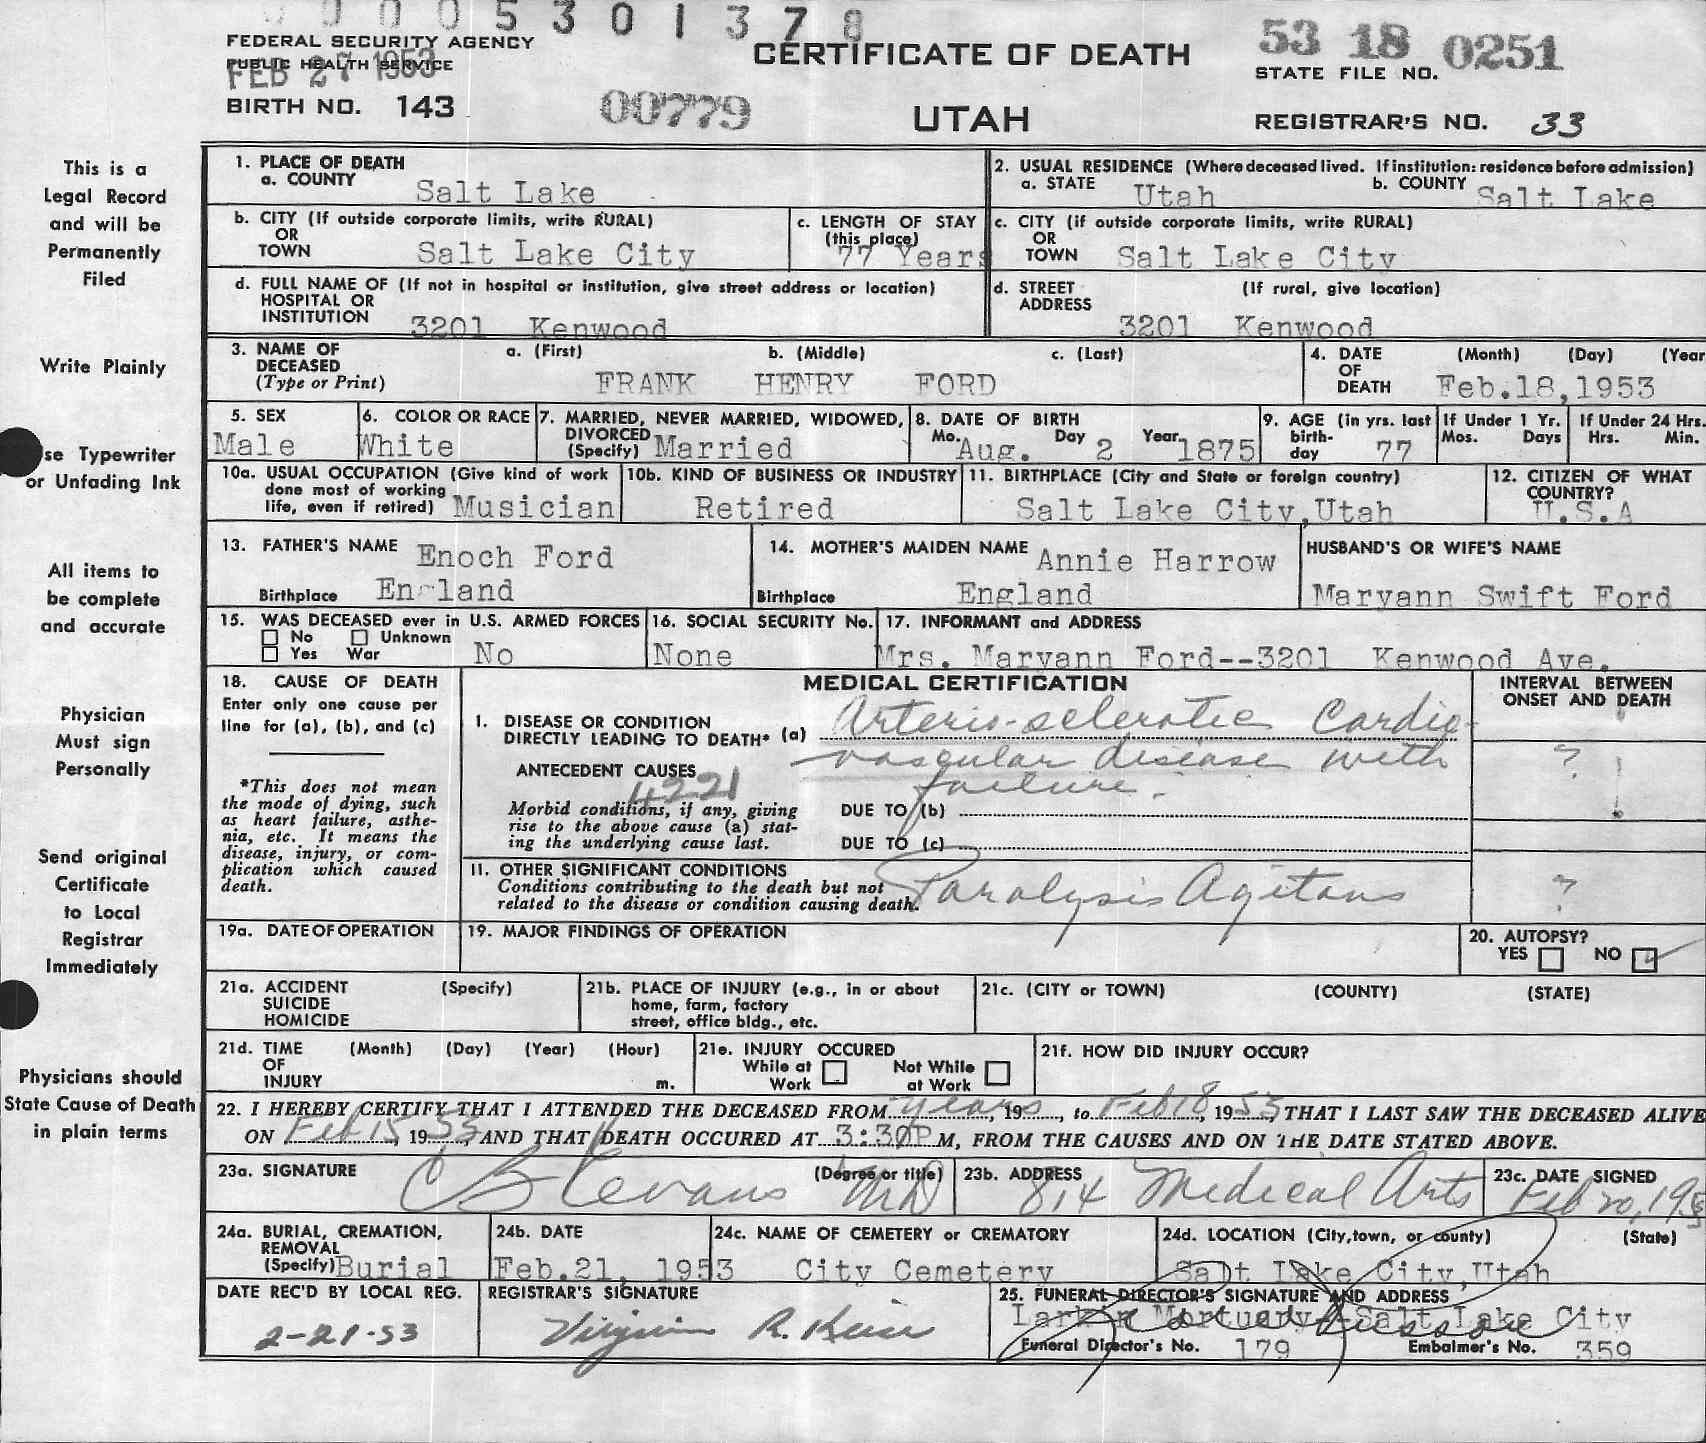 0 0 0 5 3 0 1 3 7 8
FEDERAL SECURITY AGENCY
PUBLIC HEALTH SERVICE
FEB 27 1953
BIRTH NO. 143
00779
CERTIFICATE OF DEATH
UTAH
53 18 0251
STATE FILE NO.
REGISTRAR'S NO. 33
This is a
Legal Record
and will be
Permanently
Filed
Write Plainly
se Typewriter
or Unfading Ink
All items to
be complete
and accurate
Physician
Must sign
Personally
Send original
Certificate
to Local
Registrar
Immediately
Physicians should
State Cause of Death
in plain terms
1. PLACE OF DEATH
a. COUNTY Salt Lake
2. USUAL RESIDENCE (Where deceased lived. If institution: residence before admission)
a. STATE Utah b. COUNTY Salt Lake
b. CITY (If outside corporate limits, write RURAL)
OR
TOWN Salt Lake City
c. LENGTH OF STAY
(this place)
77 Years
c. CITY (if outside corporate limits, write RURAL)
OR
TOWN Salt Lake City
d. FULL NAME OF (If not in hospital or institution, give street address or location)
HOSPITAL OR
INSTITUTION 3201 Kenwood
d. STREET (If rural, give location)
ADDRESS
3201 Kenwood
3. NAME OF a. (First) b. (Middle) c. (Last)
DECEASED
(Type or Print) FRANK HENRY FORD
4. DATE (Month) (Day) (Year
OF
DEATH Feb.18,1953
5. SEX
Male
6. COLOR OR RACE
White
7. MARRIED, NEVER MARRIED, WIDOWED,
DIVORCED
(Specify) Married
8. DATE OF BIRTH
Mo. Day Year
Aug. 2 1875
9. AGE (in yrs. last
birth-
day 77
If Under 1 Yr.
Mos. Days
If Under 24 Hrs.
Hrs. Min.
10a. USUAL OCCUPATION (Give kind of work
done most of working
life, even if retired) Musician
10b. KIND OF BUSINESS OR INDUSTRY
Retired
11. BIRTHPLACE (City and State or foreign country)
Salt Lake City,Utah
12. CITIZEN OF WHAT
COUNTRY?
U.S.A
13. FATHER'S NAME Enoch Ford
Birthplace England
14. MOTHER'S MAIDEN NAME Annie Harrow
Birthplace England
HUSBAND'S OR WIFE'S NAME
Maryann Swift Ford
15. WAS DECEASED ever in U.S. ARMED FORCES
No Unknown
Yes War No
16. SOCIAL SECURITY No.
None
17. INFORMANT and ADDRESS
Mrs. Maryann Ford--3201 Kenwood Ave.
18. CAUSE OF DEATH
Enter only one cause per
line for (a), (b), and (c)
*This does not mean
the mode of dying, such
as heart failure, asthe-
nia, etc. It means the
disease, injury, or com-
plication which caused
death.
MEDICAL CERTIFICATION
INTERVAL BETWEEN
ONSET AND DEATH
I. DISEASE OR CONDITION
DIRECTLY LEADING TO DEATH* (a) Arterio-sclerotic Cardio-
vascular disease with
failure.
?
ANTECEDENT CAUSES
4221
Morbid conditions, if any, giving
rise to the above cause (a) stat-
ing the underlying cause last.
DUE TO (b)
DUE TO (c)
11. OTHER SIGNIFICANT CONDITIONS
Conditions contributing to the death but not
related to the disease or condition causing death.
Paralysis Agitans
?
19a. DATE OF OPERATION
19. MAJOR FINDINGS OF OPERATION
20. AUTOPSY?
YES NO ✓
21a. ACCIDENT (Specify)
SUICIDE
HOMICIDE
21b. PLACE OF INJURY (e.g., in or about
home, farm, factory
street, office bldg., etc.
21c. (CITY or TOWN) (COUNTY) (STATE)
21d. TIME (Month) (Day) (Year) (Hour)
OF
INJURY m.
21e. INJURY OCCURED
While at Not While
Work at Work
21f. HOW DID INJURY OCCUR?
22. I HEREBY CERTIFY THAT I ATTENDED THE DECEASED FROM years, 19 , to Feb 18, 1953, THAT I LAST SAW THE DECEASED ALIVE
ON Feb 15, 1953 AND THAT DEATH OCCURED AT 3:30P M, FROM THE CAUSES AND ON THE DATE STATED ABOVE.
23a. SIGNATURE (Degree or title)
MD
23b. ADDRESS
814 Medical Arts
23c. DATE SIGNED
Feb 20, 195
24a. BURIAL, CREMATION,
REMOVAL
(Specify) Burial
24b. DATE
Feb.21, 1953
24c. NAME OF CEMETERY or CREMATORY
City Cemetery
24d. LOCATION (City,town, or county) (State)
Salt Lake City,Utah
DATE REC'D BY LOCAL REG.
2-21-53
REGISTRAR'S SIGNATURE
Virginia R.
25. FUNERAL DIRECTOR'S SIGNATURE AND ADDRESS
Larkin Mortuary Salt Lake City
Funeral Director's No. 179 Embalmer's No. 359